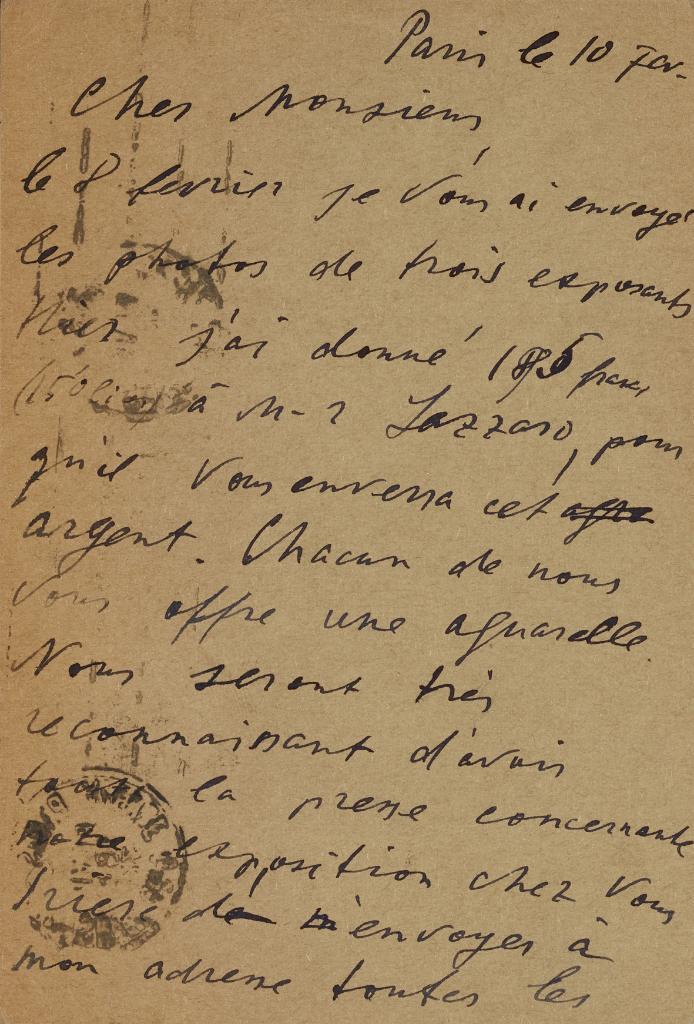 Paris le 10 Fev.
Cher Monsieur,
le 8 fevrier je Vous ai envoyer
les photos de trois exposants
Hier j'ai donné francs
à M-r Lazzaro, pour
qu'il Vous enverra cet
argent. Chacun de nous
Vous offre une aquarelle
Nous seront très
reconnaissant d'avoir
toute la presse concernante
notre exposition chez Vous
Prière de m'envoyer à
mon adresse toutes les